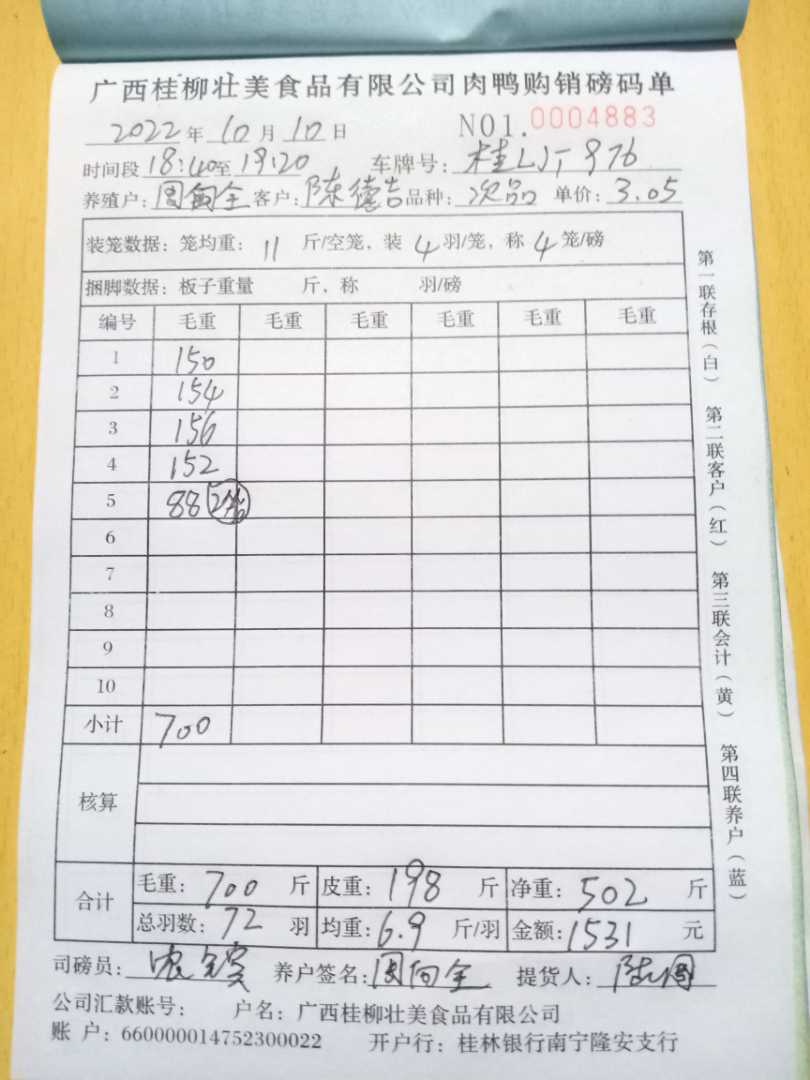 广西桂柳壮美食品有限公司肉鸭购销磅码单
2022年10月10日 NO1.0004883
时间段18:40至19:20 车牌号:桂LJT976
养殖户:周向全 客户:陈德吉 品种:次品 单价:3.05
装笼数据:笼均重:11斤/空笼、装4羽/笼,称4笼/磅
捆脚数据:板子重量 斤,称 羽/磅
编号 毛重 毛重 毛重 毛重 毛重 毛重
1 150
2 154
3 156
4 152
5 88
6
7
8
9
10
小计 700
核算
合计 毛重:700斤 皮重:198斤 净重:502斤
总羽数:72羽 均重:6.9斤/羽 金额:1531元
司磅员: 养户签名:周向全 提货人:
公司汇款账号: 户名:广西桂柳壮美食品有限公司
账 户:660000014752300022 开户行:桂林银行南宁隆安支行
第一联存根(白) 第二联客户(红) 第三联会计(黄) 第四联养户(蓝)